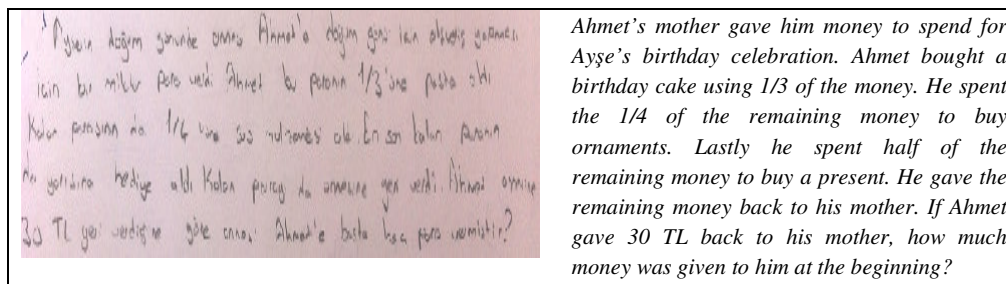 Ayşenin doğum gününde annesi Ahmet'e doğum günü için alışveriş yapması
için bir miktar para verdi. Ahmet bu paranın 1/3 'üne pasta aldı
Kalan parasının da 1/4 üne süs malzemesi aldı. En son kalan paranın
da yarısına hediye aldı Kalan parayı da annesine geri verdi. Ahmet annesine
30 TL geri verdiğine göre annesi Ahmet'e başta kaç para vermiştir?
Ahmet's mother gave him money to spend for
Ayşe's birthday celebration. Ahmet bought a
birthday cake using 1/3 of the money. He spent
the 1/4 of the remaining money to buy
ornaments. Lastly he spent half of the
remaining money to buy a present. He gave the
remaining money back to his mother. If Ahmet
gave 30 TL back to his mother, how much
money was given to him at the beginning?